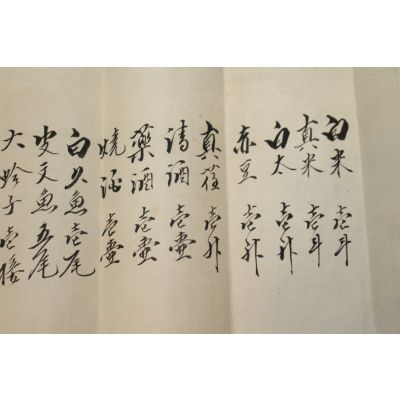 白米 壱斗
真米 壱斗
白太 壱升
赤豆 壱升
真荏 壱升
清酒 壱壷
藥酒 壱壷
燒酒 壱壷
白大魚 壱尾
文魚 五尾
大蛤子 壱